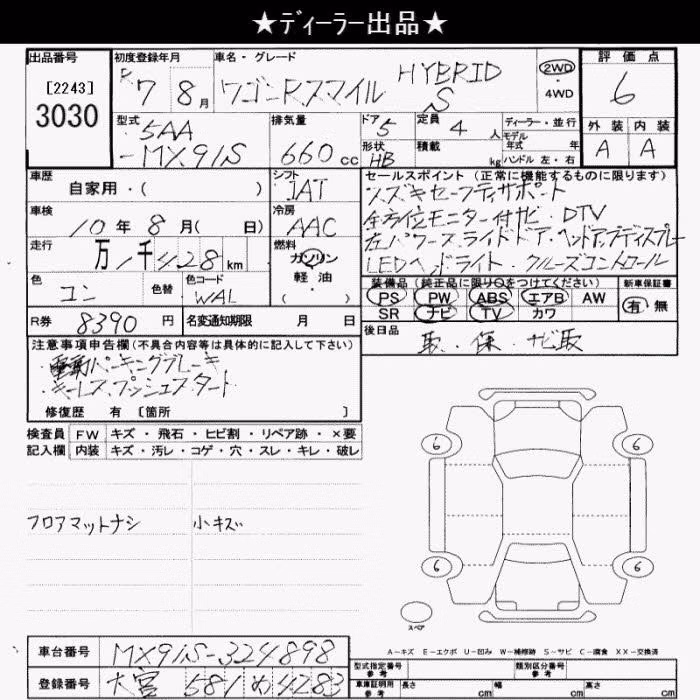 ★ディーラー出品★
出品番号
[2243]
3030
初度登録年月
R 7 8 月
車名・グレード
ワゴンRスマイル HYBRID S
2WD
・4WD
評価点
6
外装 内装
A A
型式
5AA
-MX91S
排気量
660 cc
ドア 5
形状 HB
定員 4 人
積載 kg
ディーラー・並行
モデル年式 年
ハンドル 左・右
車歴
自家用・( )
シフト
IAT
セールスポイント(正常に機能するものに限ります)
スズキセーフティサポート
全方位モニター付ナビ・DTV
左パワースライドドア・ヘッドアップディスプレー
LEDヘッドライト・クルーズコントロール
車検
10 年 8 月( 日)
冷房
AAC
走行
万 1 千 428 km
燃料
ガソリン
軽・油
( ・ )
色
コン
色替
色コード
WAL
装備品(純正品に限り○をつけてください)
PS PW ABS エアB AW
SR ナビ TV カワ
新車保証書
有・無
R券 8390 円
名変通知期限 月 日
後日品
取・保・ナビ取
注意事項申告欄(不具合内容等は具体的に記入して下さい)
・電動パーキングブレーキ
・キーレスプッシュスタート
修復歴 有 [箇所 ]
検査員 FW キズ・飛石・ヒビ割・リペア跡・×要
記入欄 内装 キズ・汚レ・コゲ・穴・スレ・キレ・破レ
フロアマットナシ 小キズ
6 6
6 6
スペア
A-キズ E-エクボ U-凹み W-補修跡 S-サビ C-腐食 XX-交換済
車台番号 MX91S-324898
登録番号 大宮 581 め 4283
型式指定番号 参考
類別区分番号 参考
車庫証明用 参考 長さ cm 幅 cm 高さ cm